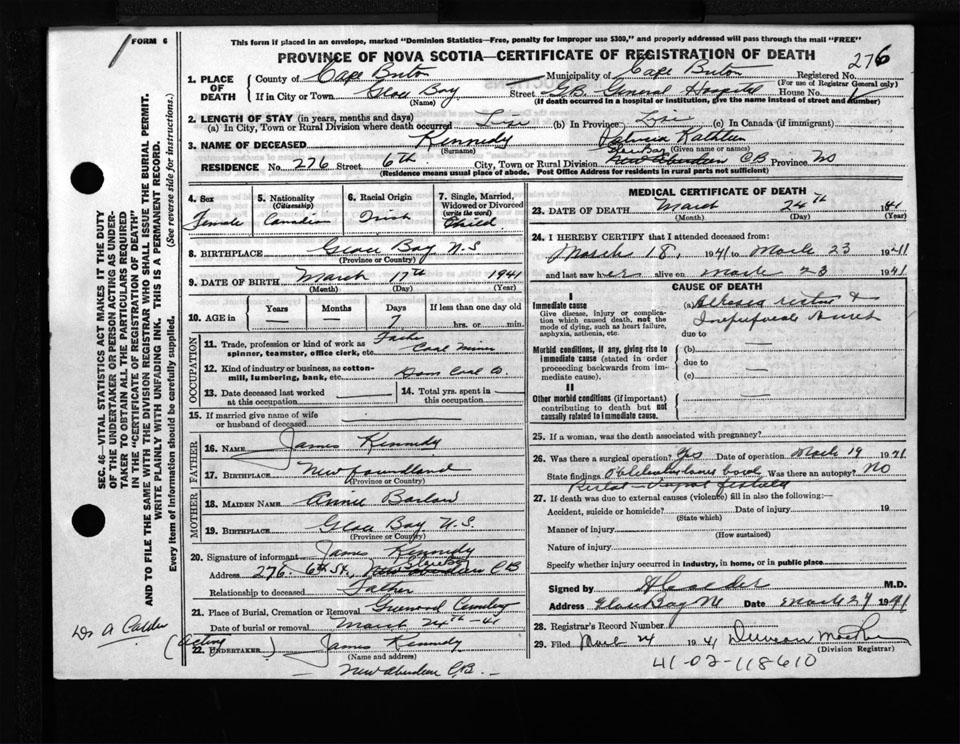 FORM 6
This form if placed in an envelope, marked "Dominion Statistics—Free, penalty for improper use $300," and properly addressed will pass through the mail "FREE"
PROVINCE OF NOVA SCOTIA—CERTIFICATE OF REGISTRATION OF DEATH
276
1. PLACE OF DEATH County of Cape Breton Municipality of Cape Breton Registered No.
(For use of Registrar General only)
If in City or Town Glace Bay Street G.B. General Hospital House No.
(Name) (If death occurred in a hospital or institution, give the name instead of street and number)
2. LENGTH OF STAY (in years, months and days)
(a) In City, Town or Rural Division where death occurred Life (b) In Province Life (c) In Canada (if immigrant)
3. NAME OF DECEASED Kennedy Patricia Kathleen
(Surname) (Given name or names)
Glace Bay
RESIDENCE No. 276 Street 6th. City, Town or Rural Division New Aberdeen C.B Province NS
(Residence means usual place of abode. Post Office Address for residents in rural parts not sufficient)
4. Sex Female
5. Nationality (Citizenship) Canadian
6. Racial Origin Irish
7. Single, Married, Widowed or Divorced (write the word) Child
8. BIRTHPLACE Glace Bay N.S
(Province or Country)
9. DATE OF BIRTH March 17th 1941
(Month) (Day) (Year)
10. AGE in Years Months Days If less than one day old
— — 7 hrs. or min.
OCCUPATION
11. Trade, profession or kind of work as spinner, teamster, office clerk, etc. Father Coal Miner
12. Kind of industry or business, as cotton-mill, lumbering, bank, etc. Dom Coal Co.
13. Date deceased last worked at this occupation
14. Total yrs. spent in this occupation
15. If married give name of wife or husband of deceased
FATHER
16. NAME James Kennedy
17. BIRTHPLACE Newfoundland
(Province or Country)
MOTHER
18. MAIDEN NAME Annie Barlow
19. BIRTHPLACE Glace Bay N.S.
(Province or Country)
20. Signature of informant James Kennedy
Glace Bay
Address 276 6th St, New Aberdeen CB
Relationship to deceased Father
21. Place of Burial, Cremation or Removal Greenwood Cemetery
Date of burial or removal March 24th-41
(acting
22. UNDERTAKER ) James Kennedy
(Name and address)
New Aberdeen C.B. —
MEDICAL CERTIFICATE OF DEATH
23. DATE OF DEATH March 24th 1941
(Month) (Day) (Year)
24. I HEREBY CERTIFY that I attended deceased from:
March 18, 1941 to March 23 1941
and last saw her alive on March 23 1941
CAUSE OF DEATH
I
Immediate cause
Give disease, injury or complication which caused death, not the mode of dying, such as heart failure, asphyxia, asthenia, etc.
(a)
due to
Morbid conditions, if any, giving rise to immediate cause (stated in order proceeding backwards from immediate cause).
(b) —
due to
(c) —
II
Other morbid conditions (if important) contributing to death but not causally related to immediate cause.
25. If a woman, was the death associated with pregnancy?
26. Was there a surgical operation? Yes Date of operation March 19 1941
State findings Was there an autopsy? NO
27. If death was due to external causes (violence) fill in also the following:—
Accident, suicide or homicide? Date of injury 19
(State which)
Manner of injury
(How sustained)
Nature of injury
Specify whether injury occurred in industry, in home, or in public place
Signed by A Calder M.D.
Address Glace Bay NS Date March 24 1941
28. Registrar's Record Number
29. Filed March 24 1941 Duncan
(Division Registrar)
41-02-118610
SEC. 46—VITAL STATISTICS ACT MAKES IT THE DUTY
OF THE UNDERTAKER OR PERSON ACTING AS UNDERTAKER TO OBTAIN ALL THE PARTICULARS REQUIRED
IN THE "CERTIFICATE OF REGISTRATION OF DEATH"
AND TO FILE THE SAME WITH THE DIVISION REGISTRAR WHO SHALL ISSUE THE BURIAL PERMIT.
WRITE PLAINLY WITH UNFADING INK. THIS IS A PERMANENT RECORD.
Every item of information should be carefully supplied. (See reverse side for instructions.)
Dr A Calder